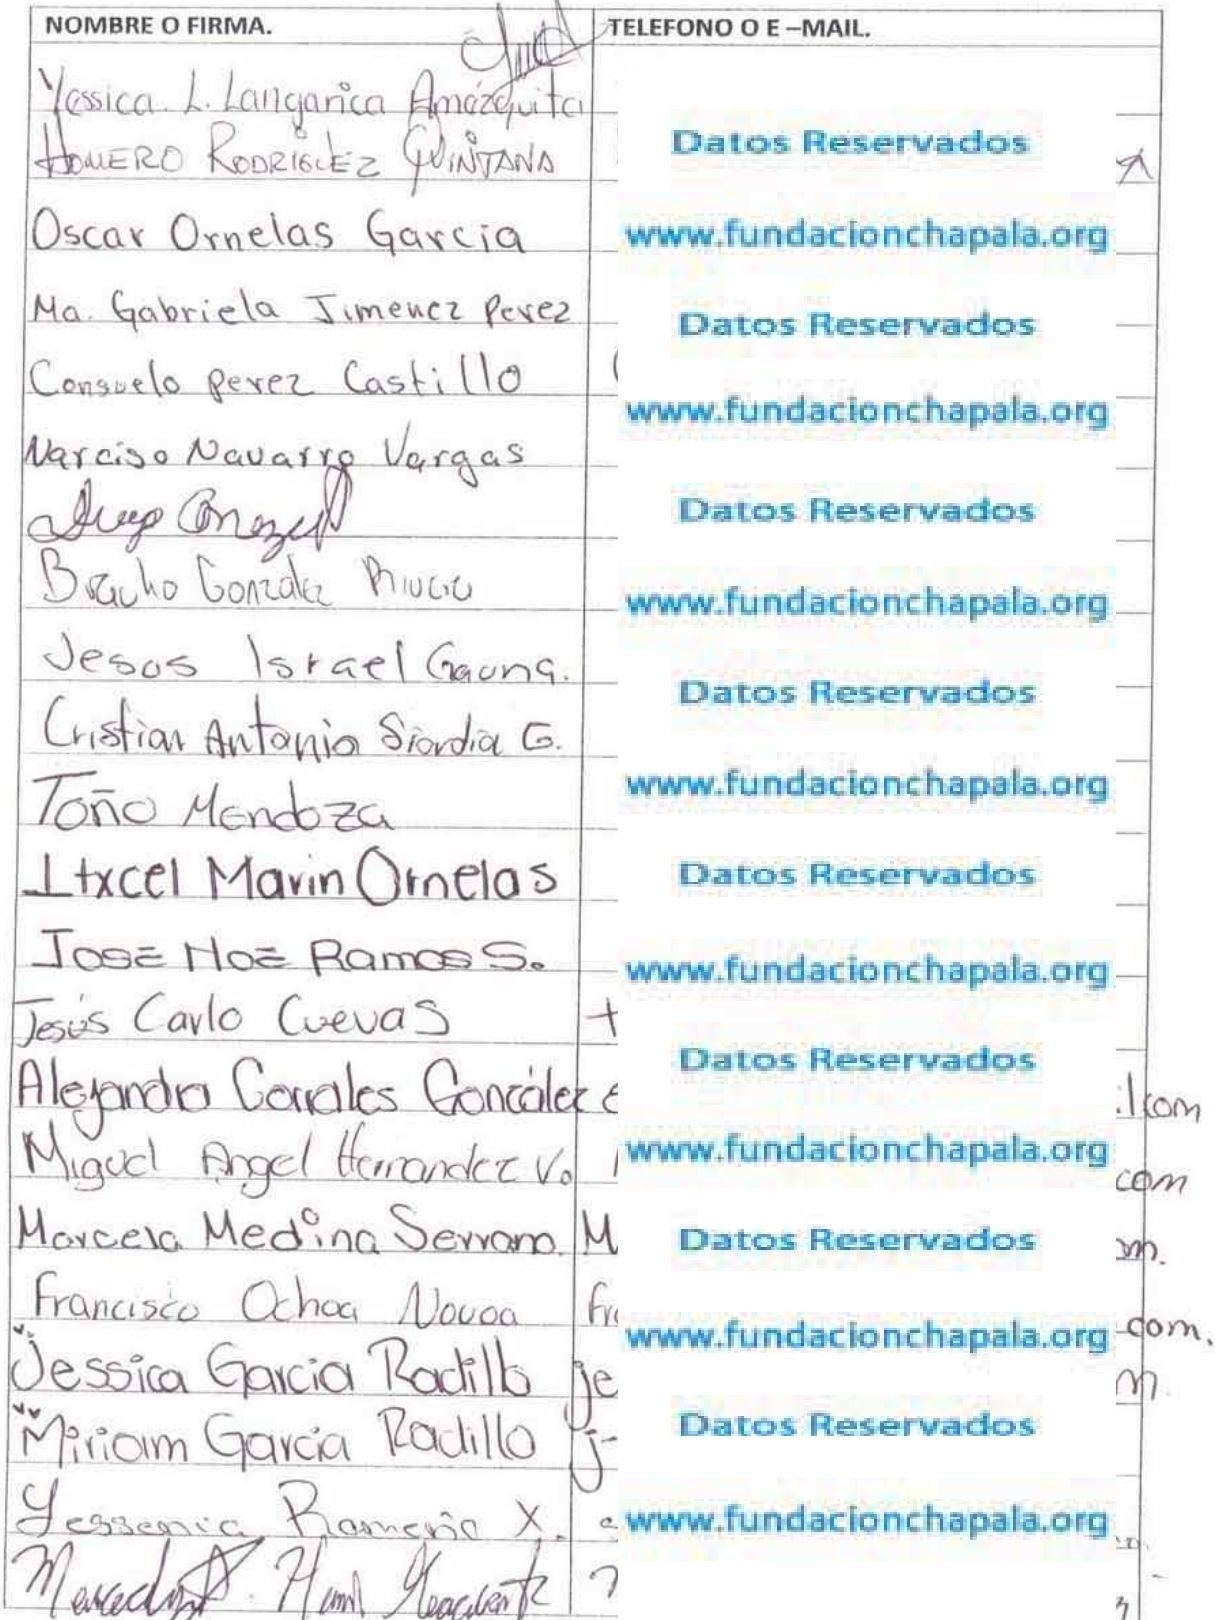 NOMBRE O FIRMA. TELEFONO O E –MAIL.
Yessica. L. Langarica Amézquita
HOMERO RODRIGUEZ QUINTANA
Datos Reservados
Oscar Ornelas Garcia
www.fundacionchapala.org
Ma. Gabriela Jimenez Perez
Datos Reservados
Consuelo Perez Castillo
www.fundacionchapala.org
Narciso Navarro Vargas
Datos Reservados
Gonzalez
www.fundacionchapala.org
Jesos Israel Gaona.
Datos Reservados
Cristian Antonio Siordia G.
www.fundacionchapala.org
Toño Mendoza
Itxcel Marin Ornelas
Datos Reservados
José Noé Ramos S.
www.fundacionchapala.org
Jesús Carlo Cuevas
Datos Reservados
Alejandra Corrales González .com
Miguel Angel Hernandez V.
www.fundacionchapala.org
com
Marcela Medina Serrano. M
Datos Reservados
Francisco Ochoa Novoa
www.fundacionchapala.org
com.
Jessica Garcia Radillo je
Miriam Garcia Radillo j-
Datos Reservados
Yessenia X.
www.fundacionchapala.org